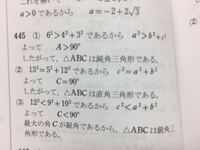 a>0 であるから a=−2+2√3
445 (1) 6²>4²+3² であるから a²>b²+c²
よって A>90°
したがって，△ABCは鈍角三角形である。
(2) 13²=5²+12² であるから c²=a²+b²
よって C=90°
したがって，△ABCは直角三角形である。
(3) 12²<9²+10² であるから c²<a²+b²
よって C<90°
最大の角Cが鋭角であるから，△ABCは鋭角三
角形である。